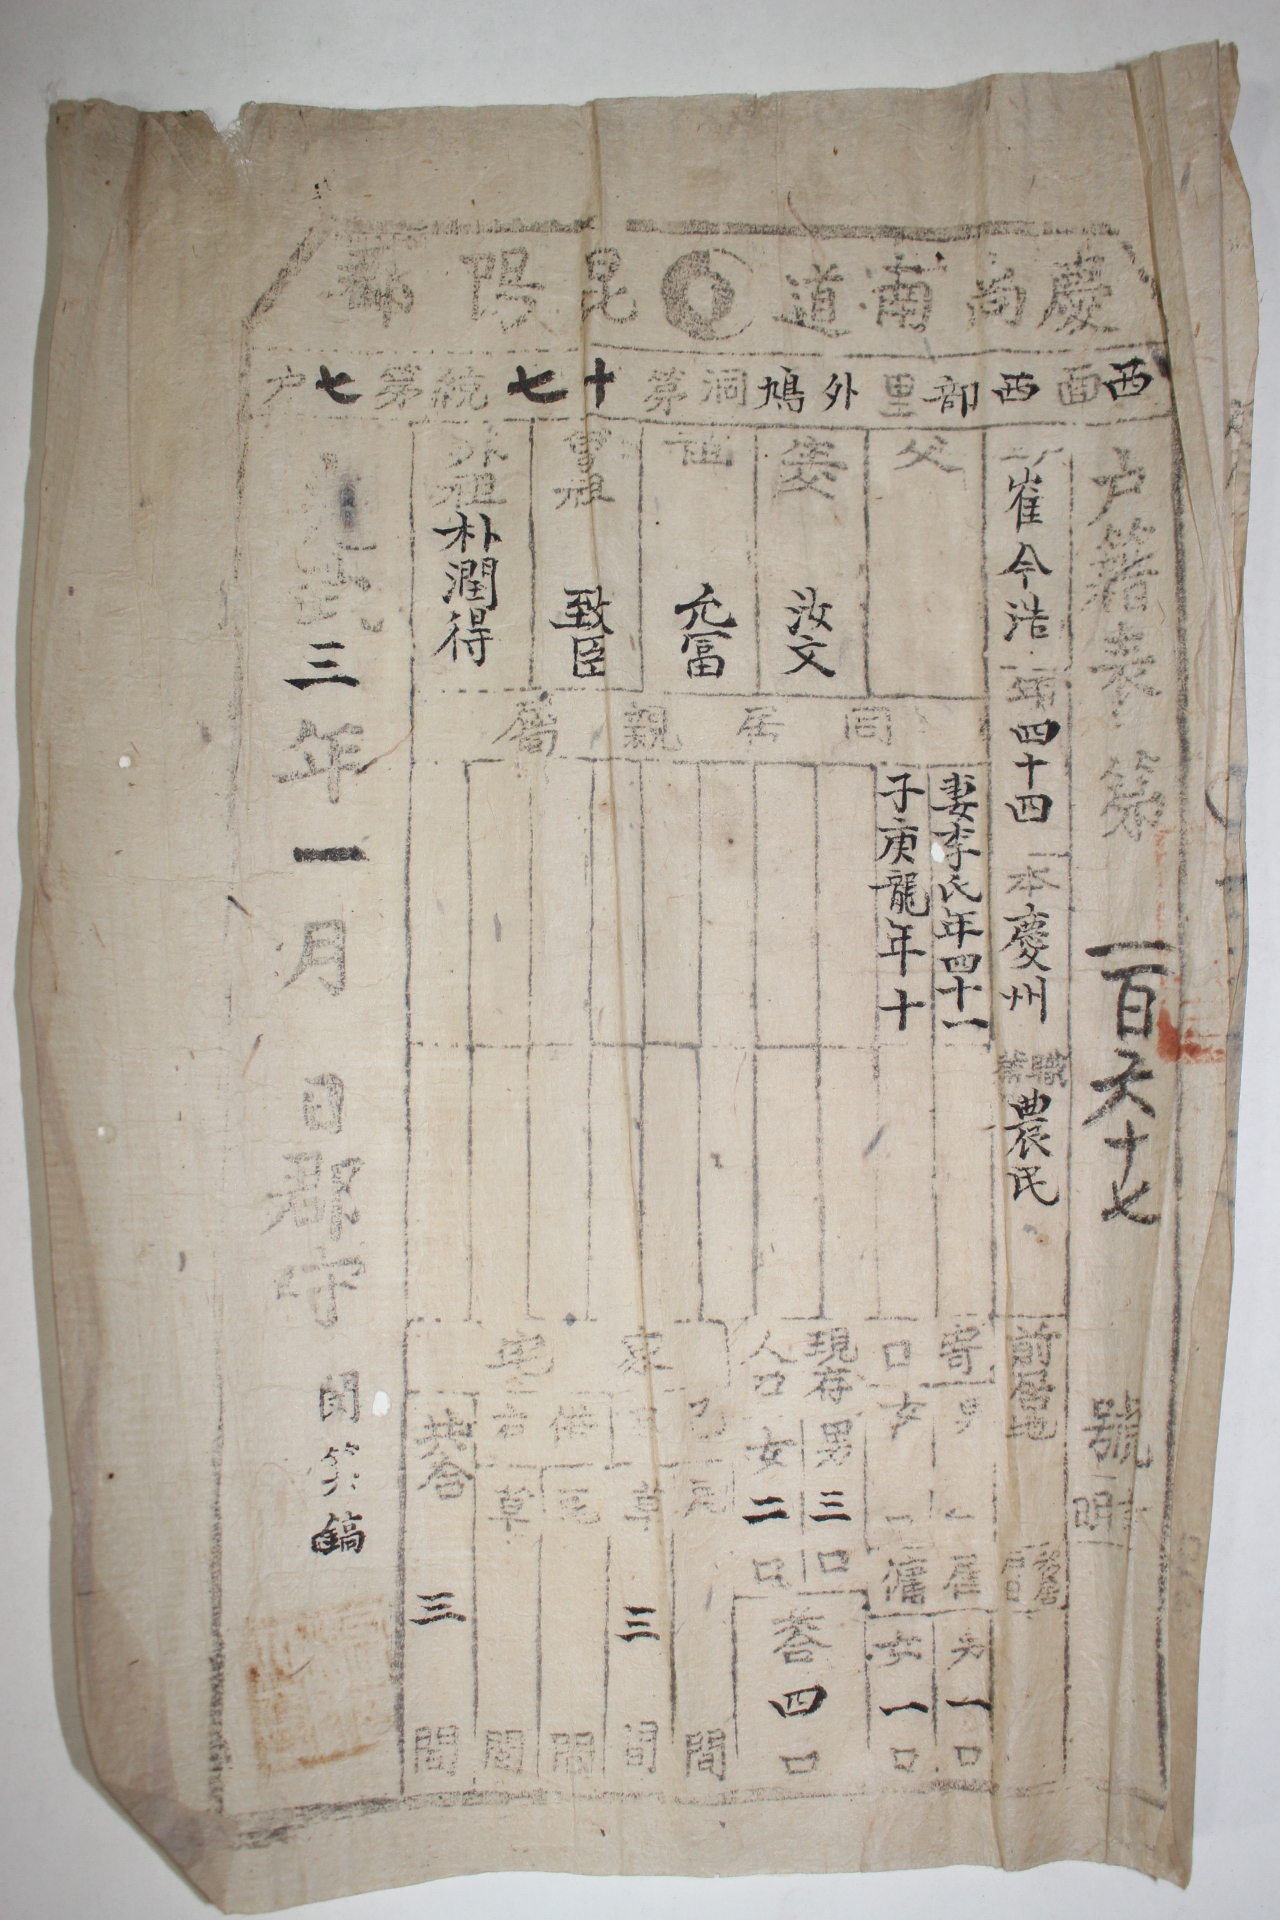 慶尚南道 昆陽郡
西面西部里外鳩洞第十七統第七户
户籍表第一百六十七號
崔今浩 年四十四 本慶州 職業農民
前居地
移居月日
父
汝文
允富
曾祖 致臣
外祖 朴潤得
同居親屬
妻李氏年四十一
子庚龍年十
寄口 男 女
雇傭 男一口 女一口
現存人口 男三口 女二口
共合四口
家宅
己有 瓦 間 草三間
借有 瓦 間 草 間
共合三間
光武三年一月 日郡守